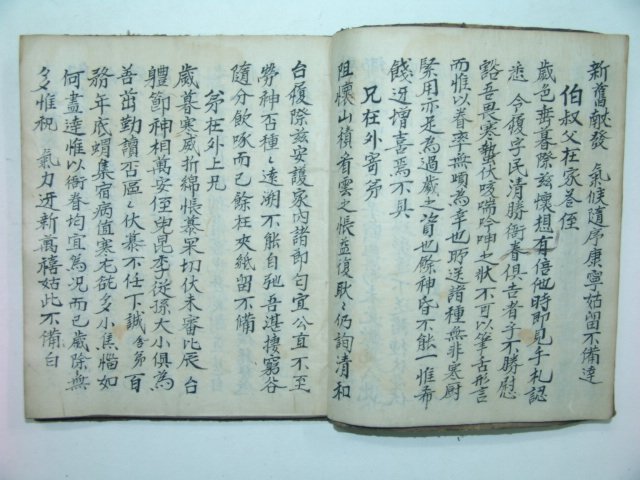 新舊獻發　氣候隨序康寧姑留不備達
伯叔父在家答侄
歲色垂暮際玆懷想有倍他時即見手札認
悉　令履字民清勝衙眷俱吉者子不勝慰
豁吾畏寒蟄伏咳喘呻之狀不可以筆舌形言
而惟以眷率無頃為幸也耶送諸種無非寒厨
緊用亦足為過歲之資也餘神昏不能一惟希
餞迓增喜焉不具
兄在外寄弟
阻懷山積看雲之悵益復耿〻仍詢清和
台履際玆安護家內諸節勻宜公直不至
勞神否種〻遠溯不能自弛吾湛棲窮谷
隨分飲啄而已餘在夾紙留不備
弟在外上兄
歲暮寒威折綿悵慕冞切伏未審比辰　台
體節神相萬安侄兒昆季從孫大小俱為
善茁勤讀否區〻伏慕不任下誠舍弟百
務年底蝟集宿病值寒尤能多小焦惱如
何盡達惟以衙眷均宜為况而已歲除無
多惟祝　氣力迓新萬禧姑此不備白